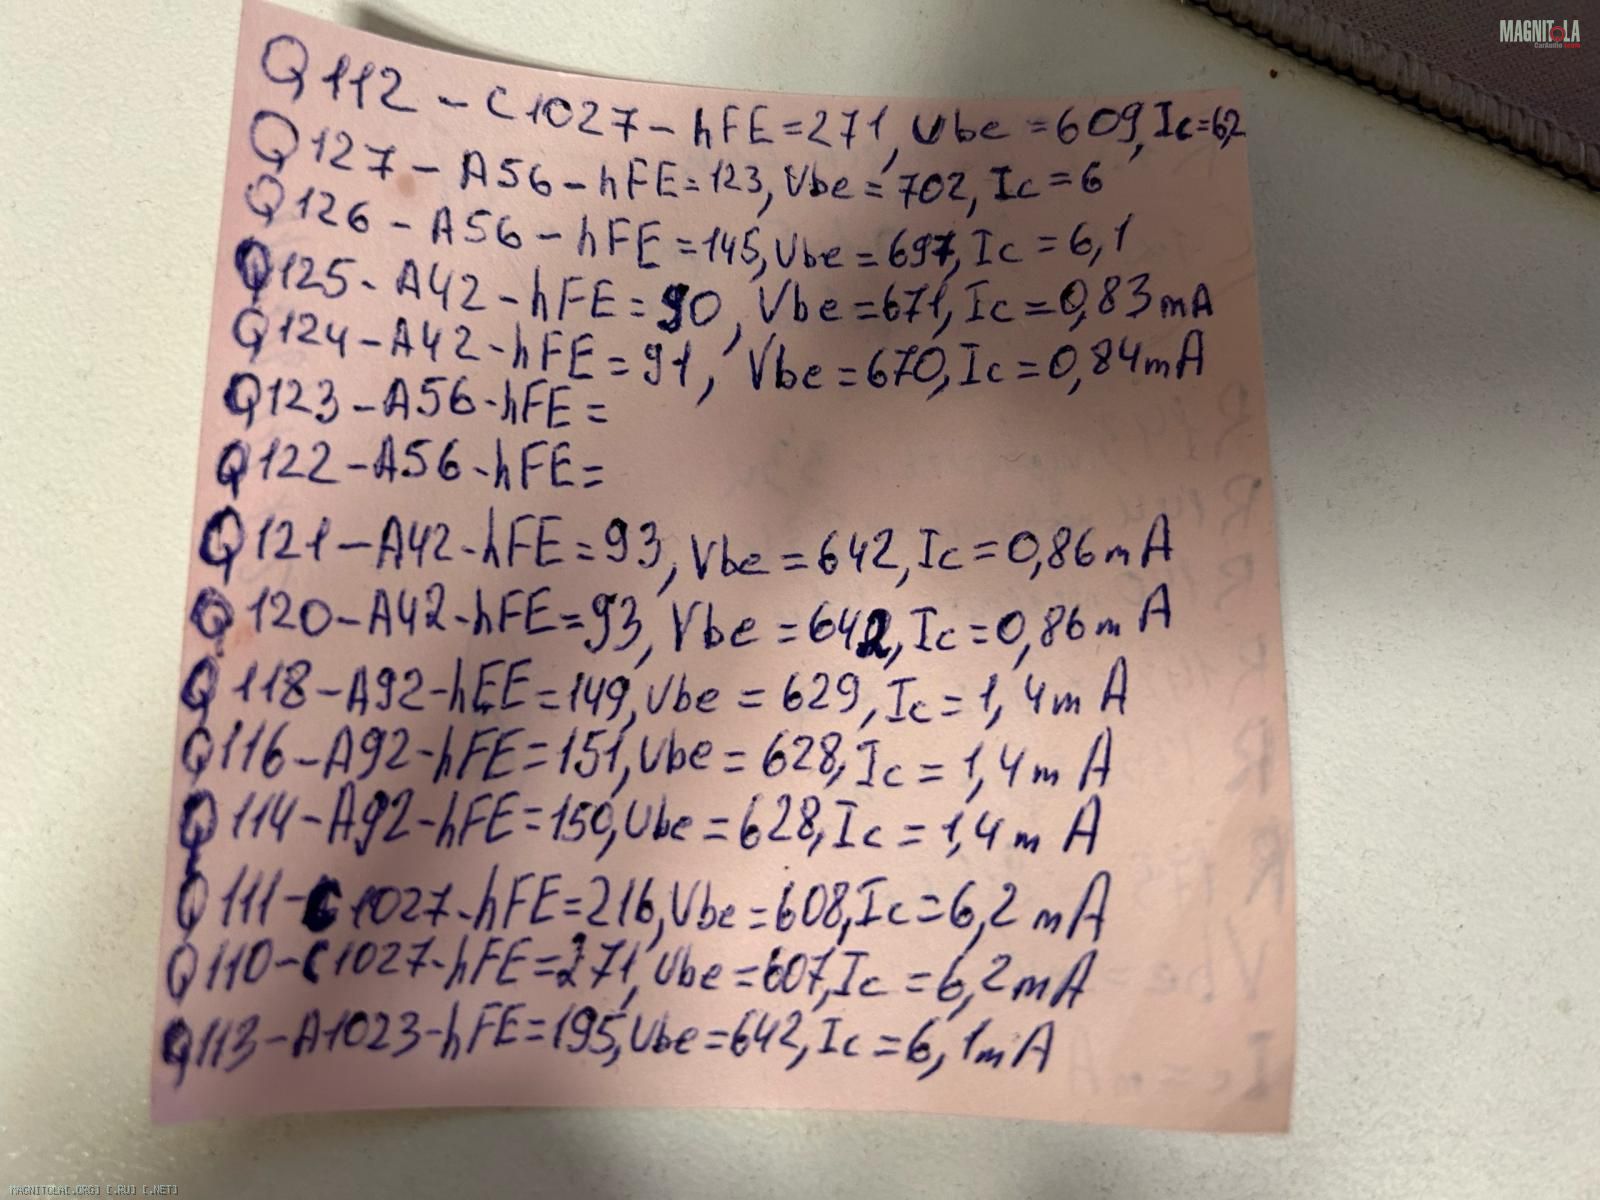 MAGNITOLA
CarAudio.com
Q112 - C1027 - hFE=271, Vbe=609, Ic=6,2
Q127 - A56 - hFE=123, Vbe=702, Ic=6
Q126 - A56 - hFE=145, Vbe=697, Ic=6,1
Q125 - A42 - hFE=90, Vbe=671, Ic=0,83mA
Q124 - A42 - hFE=91, Vbe=670, Ic=0,84mA
Q123 - A56 - hFE=
Q122 - A56 - hFE=
Q121 - A42 - hFE=93, Vbe=642, Ic=0,86mA
Q120 - A42 - hFE=93, Vbe=642, Ic=0,86mA
Q118 - A92 - hFE=149, Vbe=629, Ic=1,4mA
Q116 - A92 - hFE=151, Vbe=628, Ic=1,4mA
Q114 - A92 - hFE=150, Vbe=628, Ic=1,4mA
Q111 - C1027 - hFE=216, Vbe=608, Ic=6,2mA
Q110 - C1027 - hFE=271, Vbe=607, Ic=6,2mA
Q113 - A1023 - hFE=195, Vbe=642, Ic=6,1mA
MAGNITOLA[.ORG] [.RU] [.NET]